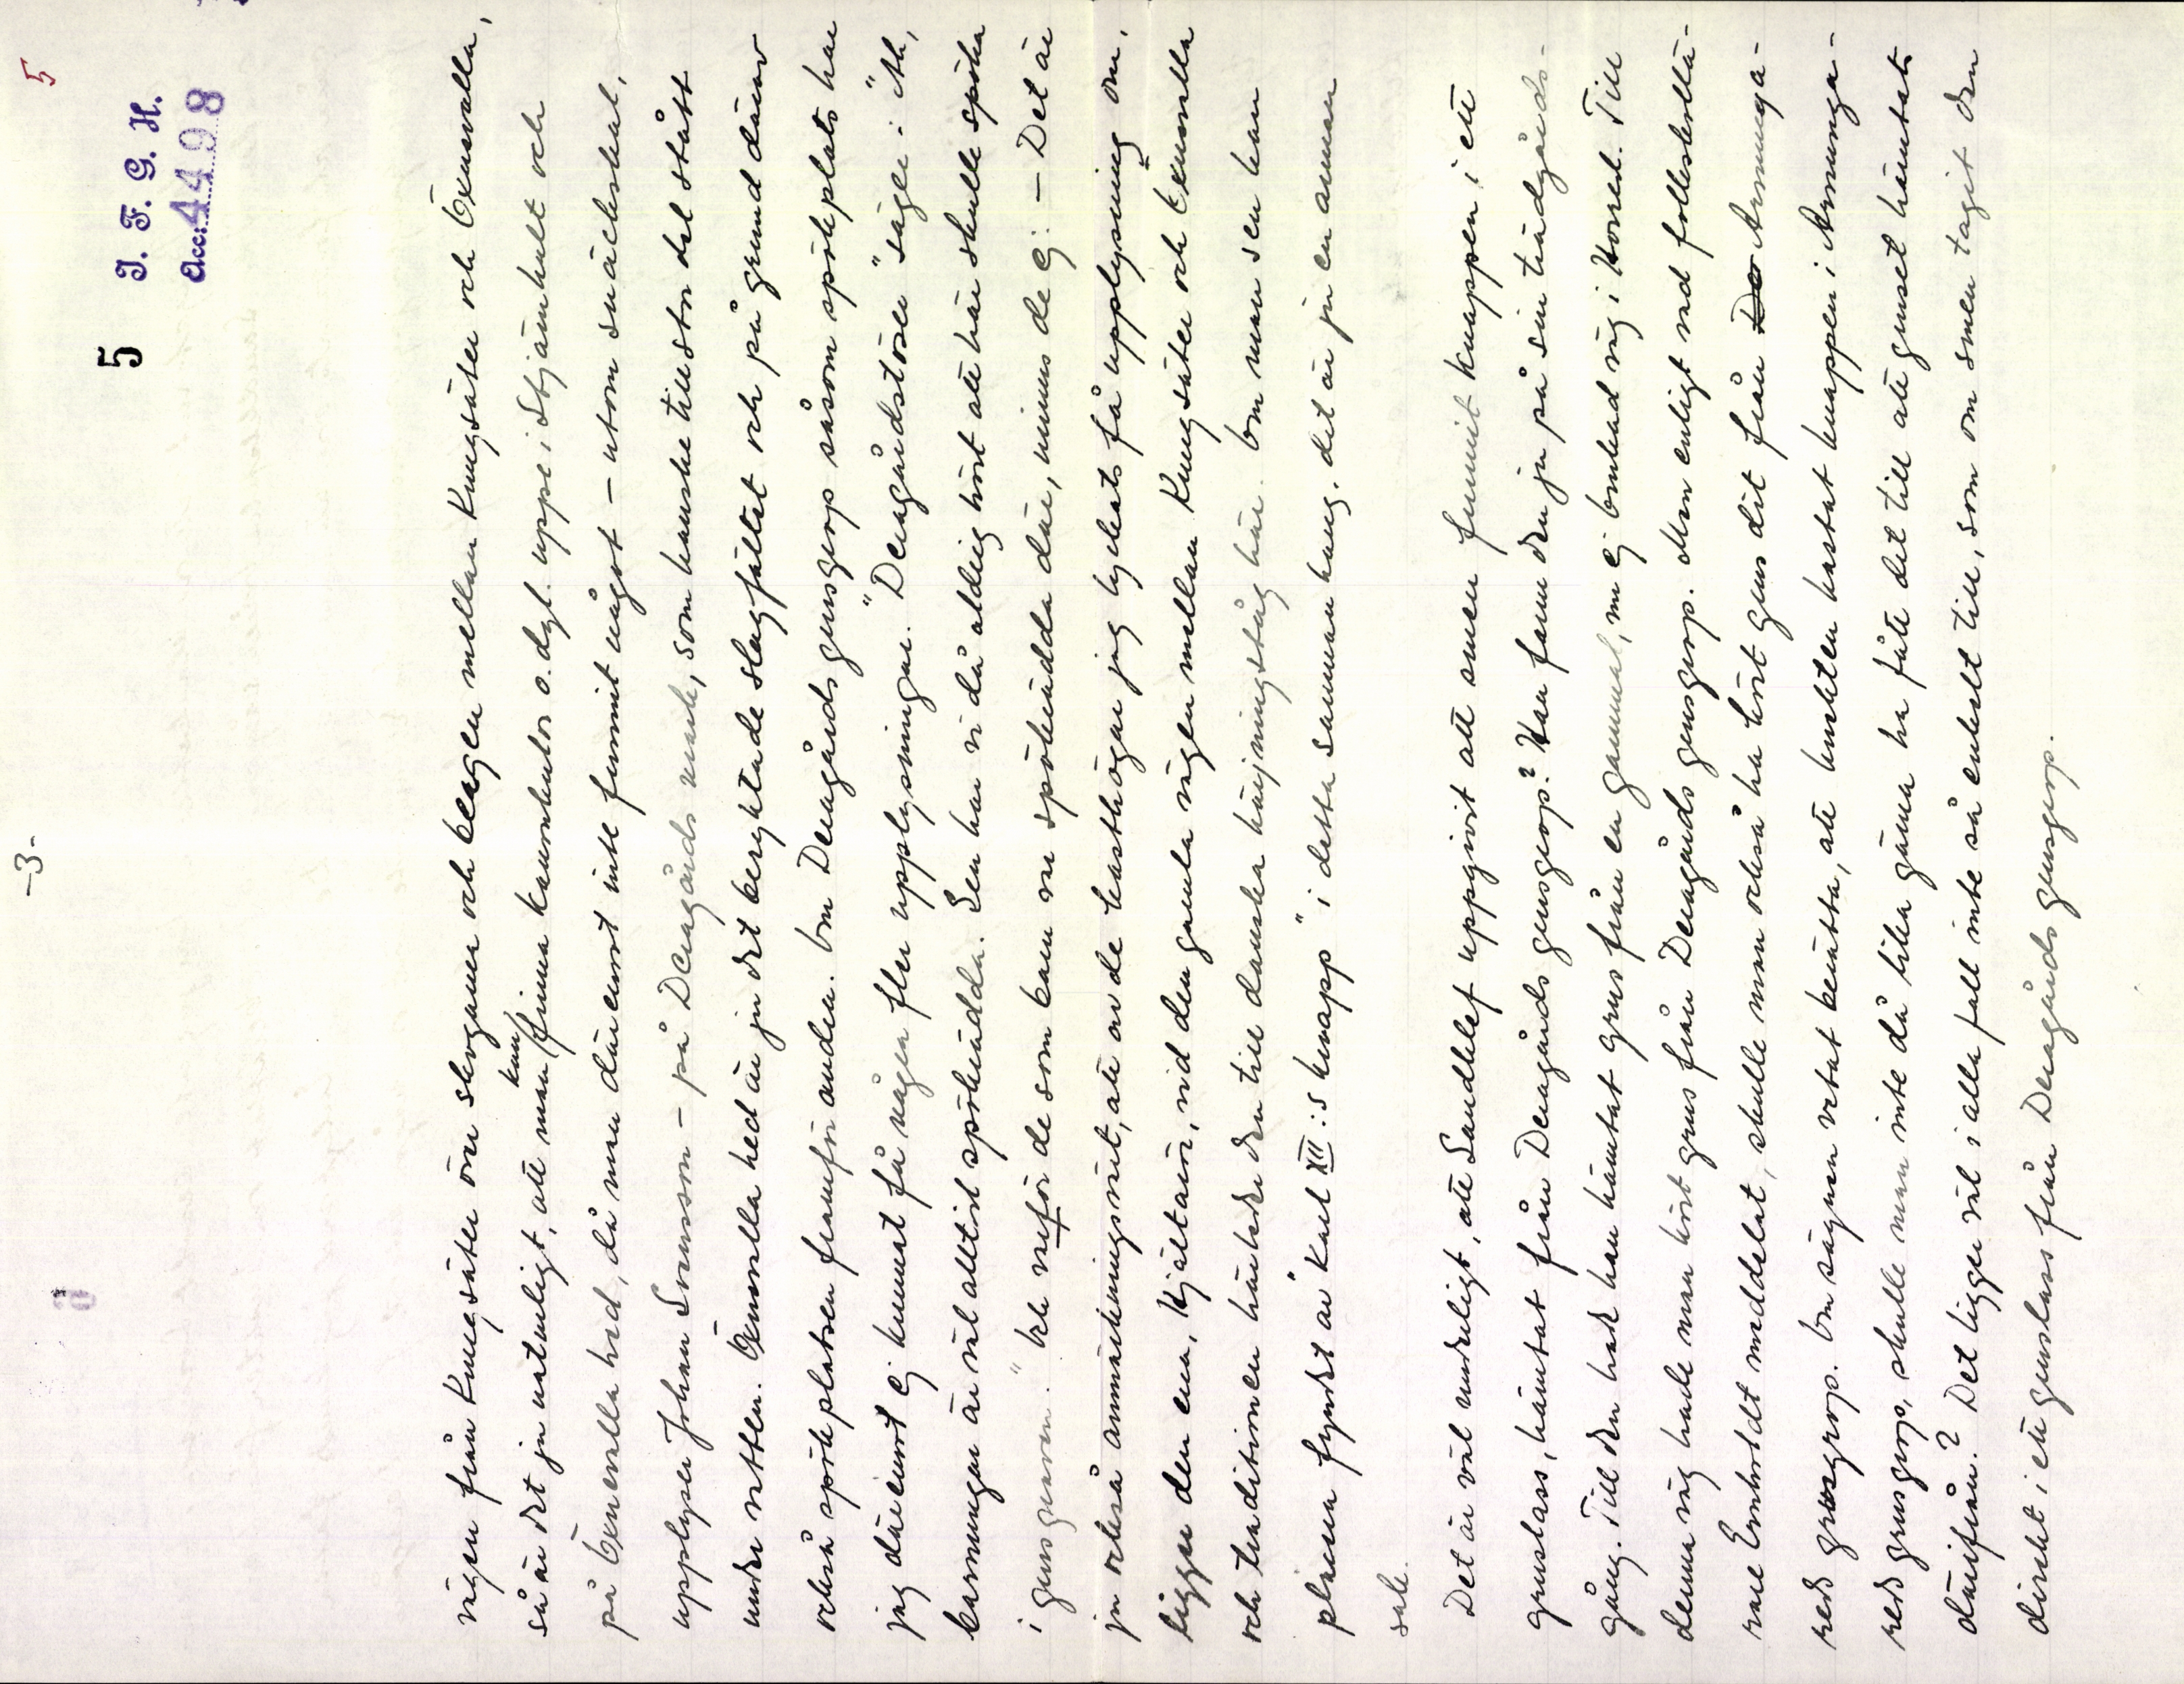 -3-
5
5 I. F. G. H.
Acc: 4498
vägen från Kungsäter över skogarna och bergen mellan Kungsäter och Öxnevalla,
så är det ju naturligt, att man kan finna kanonkulor o. dyl. uppe i Stjärnhult och
på Öxnevalla hed, då man däremot inte funnit något – utom snäckskal,
upplyser Johan Svensson – på Deragårds mark, som kanske till stor del stått
under vatten. Öxnevalla hed är ju det beryktade slagfältet och på grund därav
också spökplatsen framför andra. Om Deragårds grusgrop såsom spökplats har
jag däremot ej kunnat få några fler upplysningar. "Deragårdstösen" säger: "Äh,
barnungar är väl alltid spökrädda. Sen har vi då aldrig hört att här skulle spöka
i grusgraven." Och varför de som barn var spökrädda där, minns de ej. – Det är
ju också anmärkningsvärt, att av de kasthögar jag lyckats få upplysning om,
ligger den ena, Hjältarör, vid den gamla vägen mellan Kungsäter och Öxnevalla
och traditionen härleder den till danska härjningståg här. Om man sen kan
placera fyndet av "Karl XII:s knapp" i detta sammanhang, det är ju en annan
sak.
Det är väl underligt, att Sandklef uppgivit att smen funnit knappen i ett
gruslass, hämtat från Deragårds grusgrop? Han fann den ju på sin trädgårds-
gång. Till den hade han hämtat grus från en gammal, nu ej brukad väg i Horred. Till
denna väg hade man kört grus från Deragårds grusgrop. Men enligt vad folkskollä-
rare Ernholdt meddelat, skulle man också ha kört grus dit från De Annunga-
reds grusgrop. Om sägnen vetat berätta, att knekten kastat knappen i Annunga-
reds grusgrop, skulle man inte då lika gärna ha fått det till att gruset hämtats
därifrån? Det ligger väl i alla fall inte så enkelt till, som om smen tagit den
direkt i ett gruslass från Deragårds grusgrop.